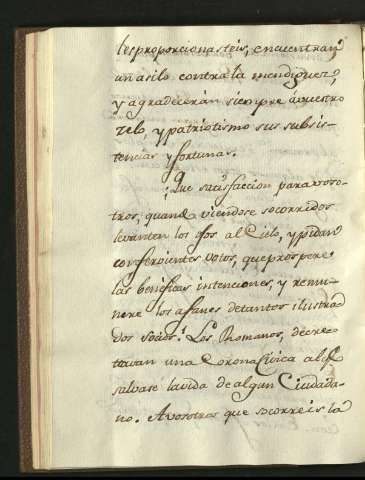 les proporcionasteis, encuentran
un asilo contra la mendiguez,
y agradecerán siempre á vuestro
zelo, y patriotismo sus subsis-
tencias y fortunas.
¡Que satisfaccion para voso-
tros, quando viendose socorridos
levanten los ojos al Cielo, y pidan
con fervientes votos, que prospere
las beneficas intenciones, y remu-
nere los afanes de tantos ilustra-
dos socios! Los Rhomanos, decre-
taban una Corona Civica al q.
salvase la vida de algun Ciudada-
no. A vosotros que socorreis la